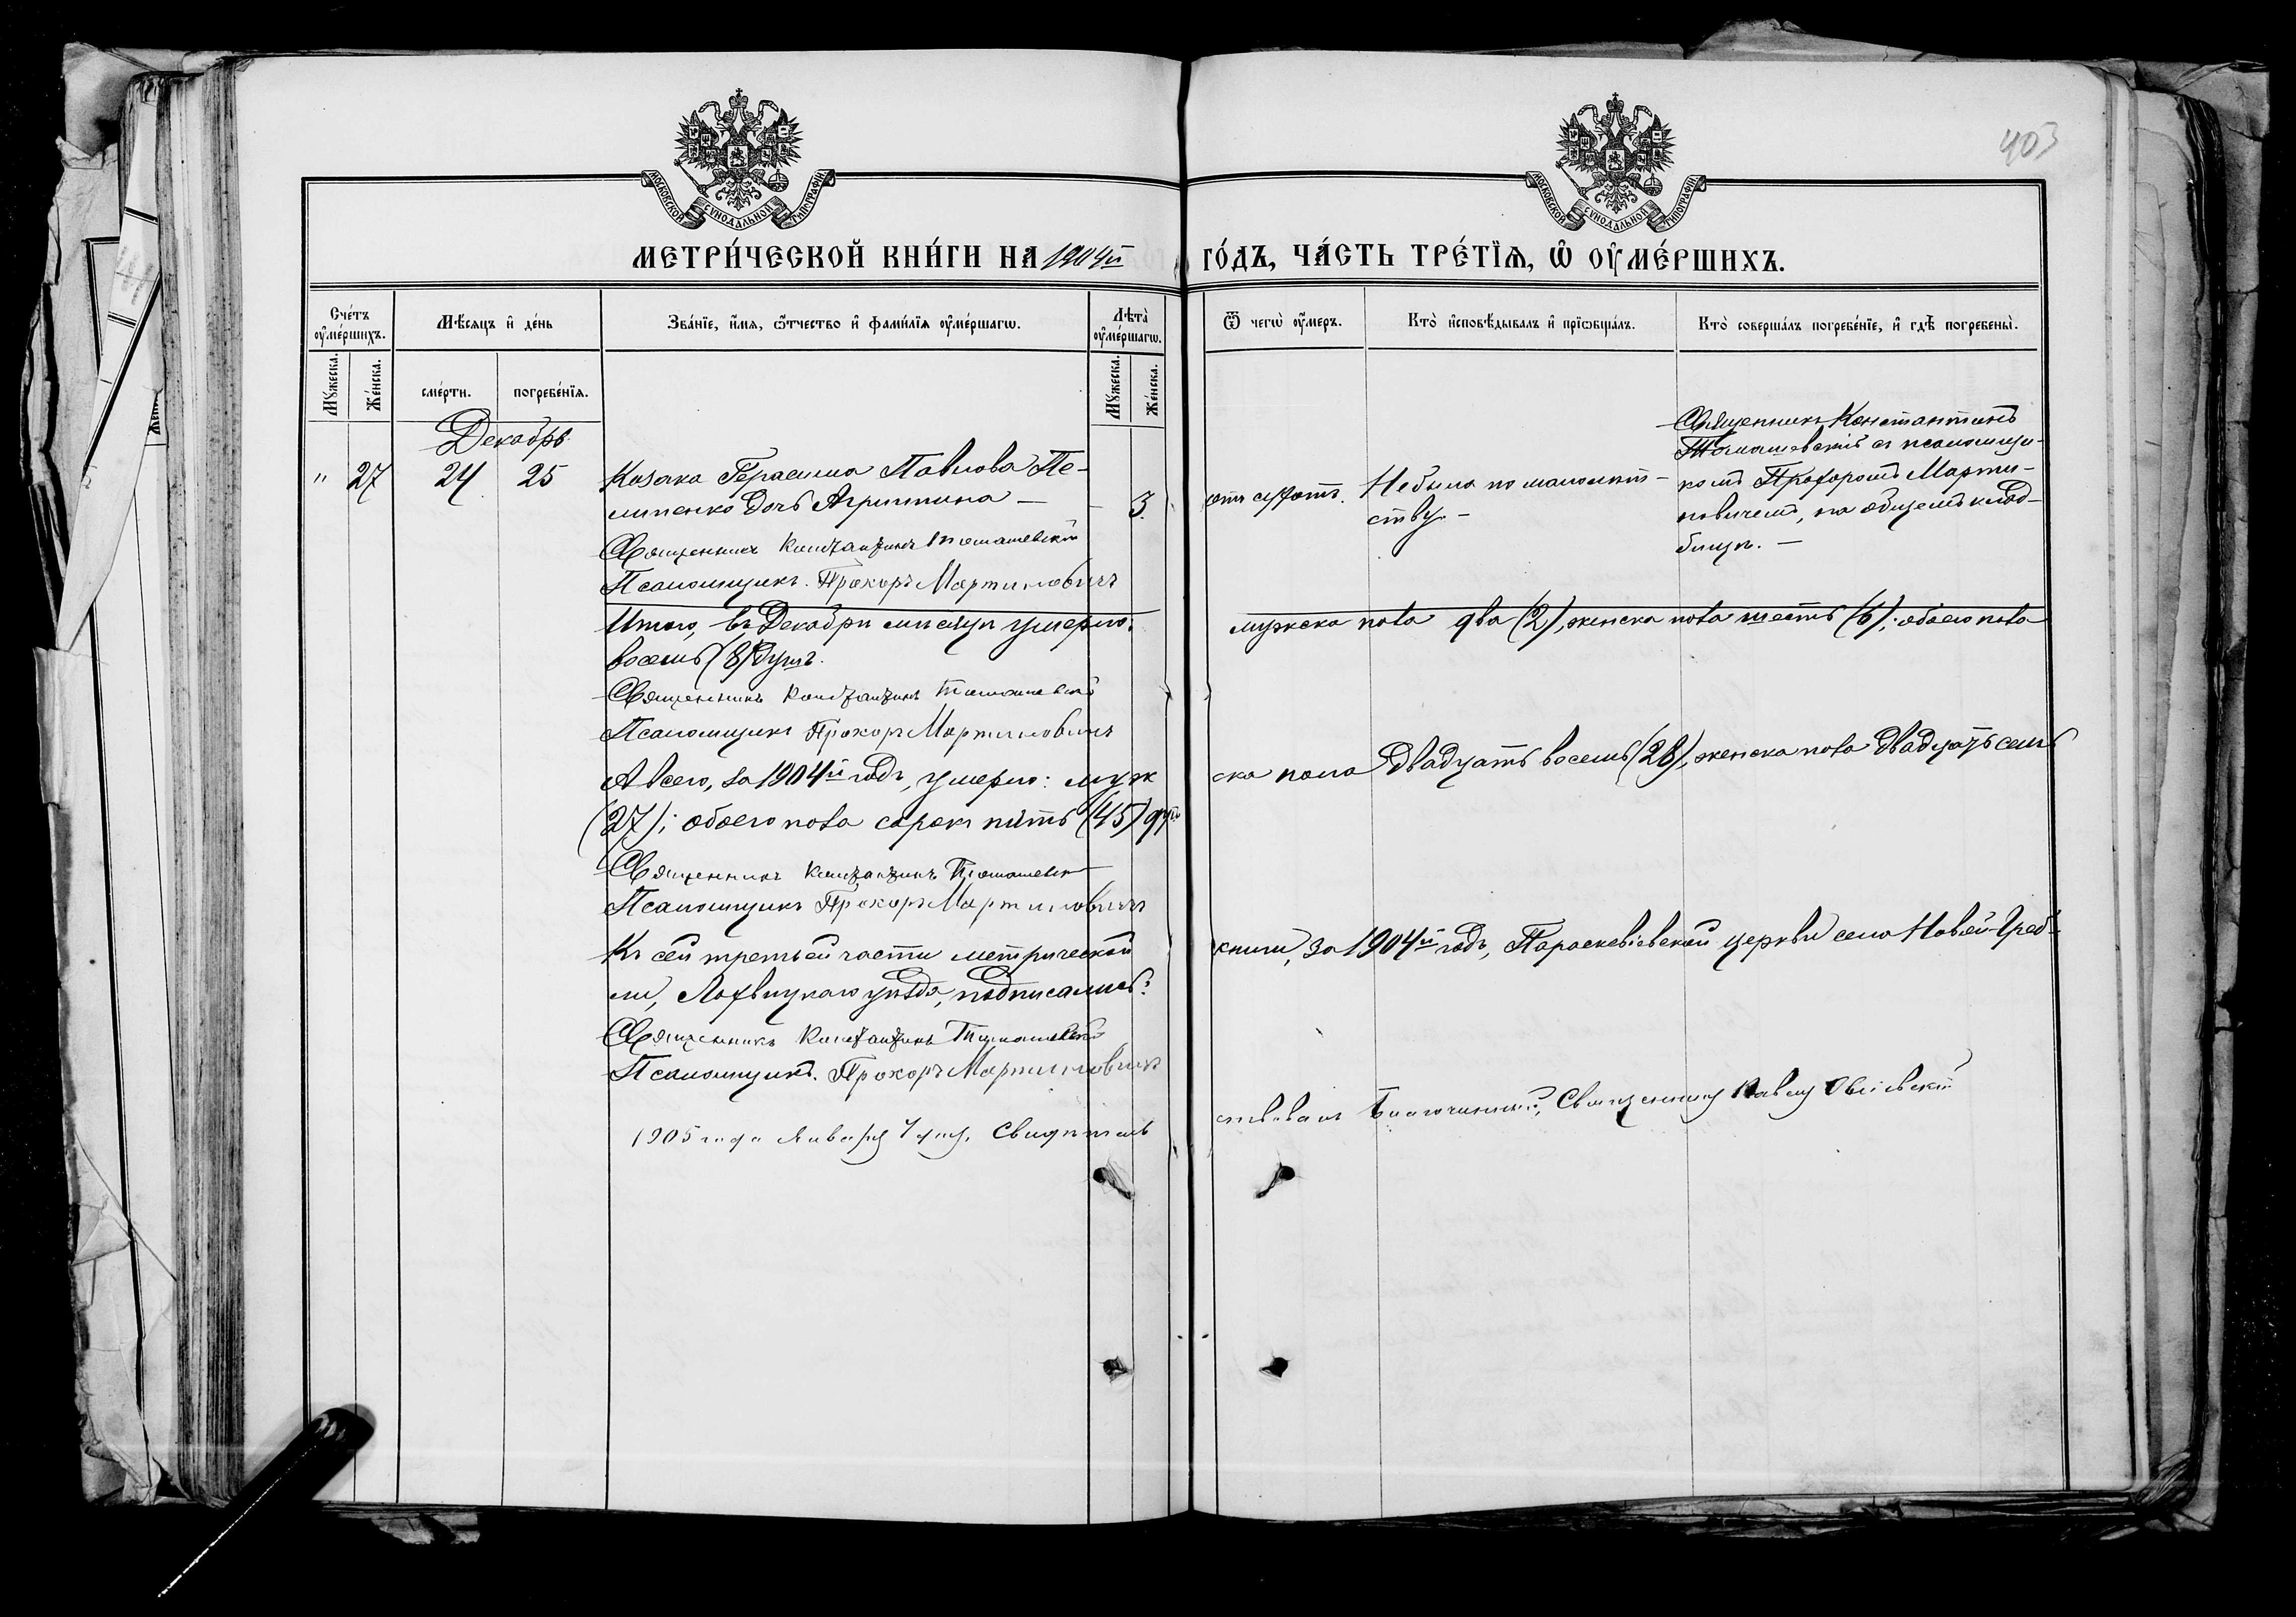 403
МОСКОВСКОЙ СѴНОДАЛЬНОЙ ТИПОГРАФІИ
МОСКОВСКОЙ СѴНОДАЛЬНОЙ ТИПОГРАФІИ
МЕТРИ́ЧЕСКОЙ КНИ́ГИ НА 1904й ГО́ДЪ, ЧА́СТЬ ТРЕ́ТІѦ, Ѡ҆ ОУ҆МЕ́РШИХЪ.
Сче́тъ оу҆ме́ршихъ.
Мѣ́сѧцъ и҆ де́нь
Зва́нїе, и҆́мѧ, ѻ҆́тчество и҆ фами́лїѧ оу҆ме́ршагѡ.
Лѣ̀та оу҆ме́ршагѡ.
Ѿ чегѡ̀ оу҆́меръ.
Кто̀ и҆сповѣ́дывалъ и҆ прїѡбща́лъ.
Кто̀ соверша́лъ погребе́нїе, и҆ гдѣ̀ погребены̀.
Мꙋ́жеска.
Же́нска.
сме́рти.
погребе́нїѧ.
Мꙋ́жеска.
Же́нска.
Декабрь
" 27 24 25 Козака Герасима Павлова Пе-
липенко дочь Агриппина —
- 3.
Не было по малолѣт-
ству. -
Священникъ Константинъ
Томашевскій съ псаломщи-
комъ Прохоромъ Марти-
новичемъ, на общемъ клад-
бищѣ. —
Священникъ Константинъ Томашевскій
Псаломщикъ. Прохоръ Мартиновичъ
Итого, въ Декабрѣ мѣсяцѣ умерло: мужска пола два (2), женска пола шесть (6); обоего пола
восемь (8) душъ.
Священникъ Константинъ Томашевскій
Псаломщикъ Прохоръ Мартиновичъ
А всего, за 1904й годъ, умерло: мужска пола двадцать восемь (28), женска пола двадцать семь
(27); обоего пола сорокъ пять (45) душъ
Священникъ Константинъ Томашевскій
Псаломщикъ Прохоръ Мартиновичъ
Къ сей третьей части метрической книги, за 1904й годъ, Параскевіевской церкви села Новой-Греб-
ли, Лохвицкаго уѣзда, подписались:
Священникъ Константинъ Томашевскій
Псаломщикъ. Прохоръ Мартиновичъ
1905 года Января дня, Свидѣтель
ствовалъ Благочинный, Священникъ Павелъ